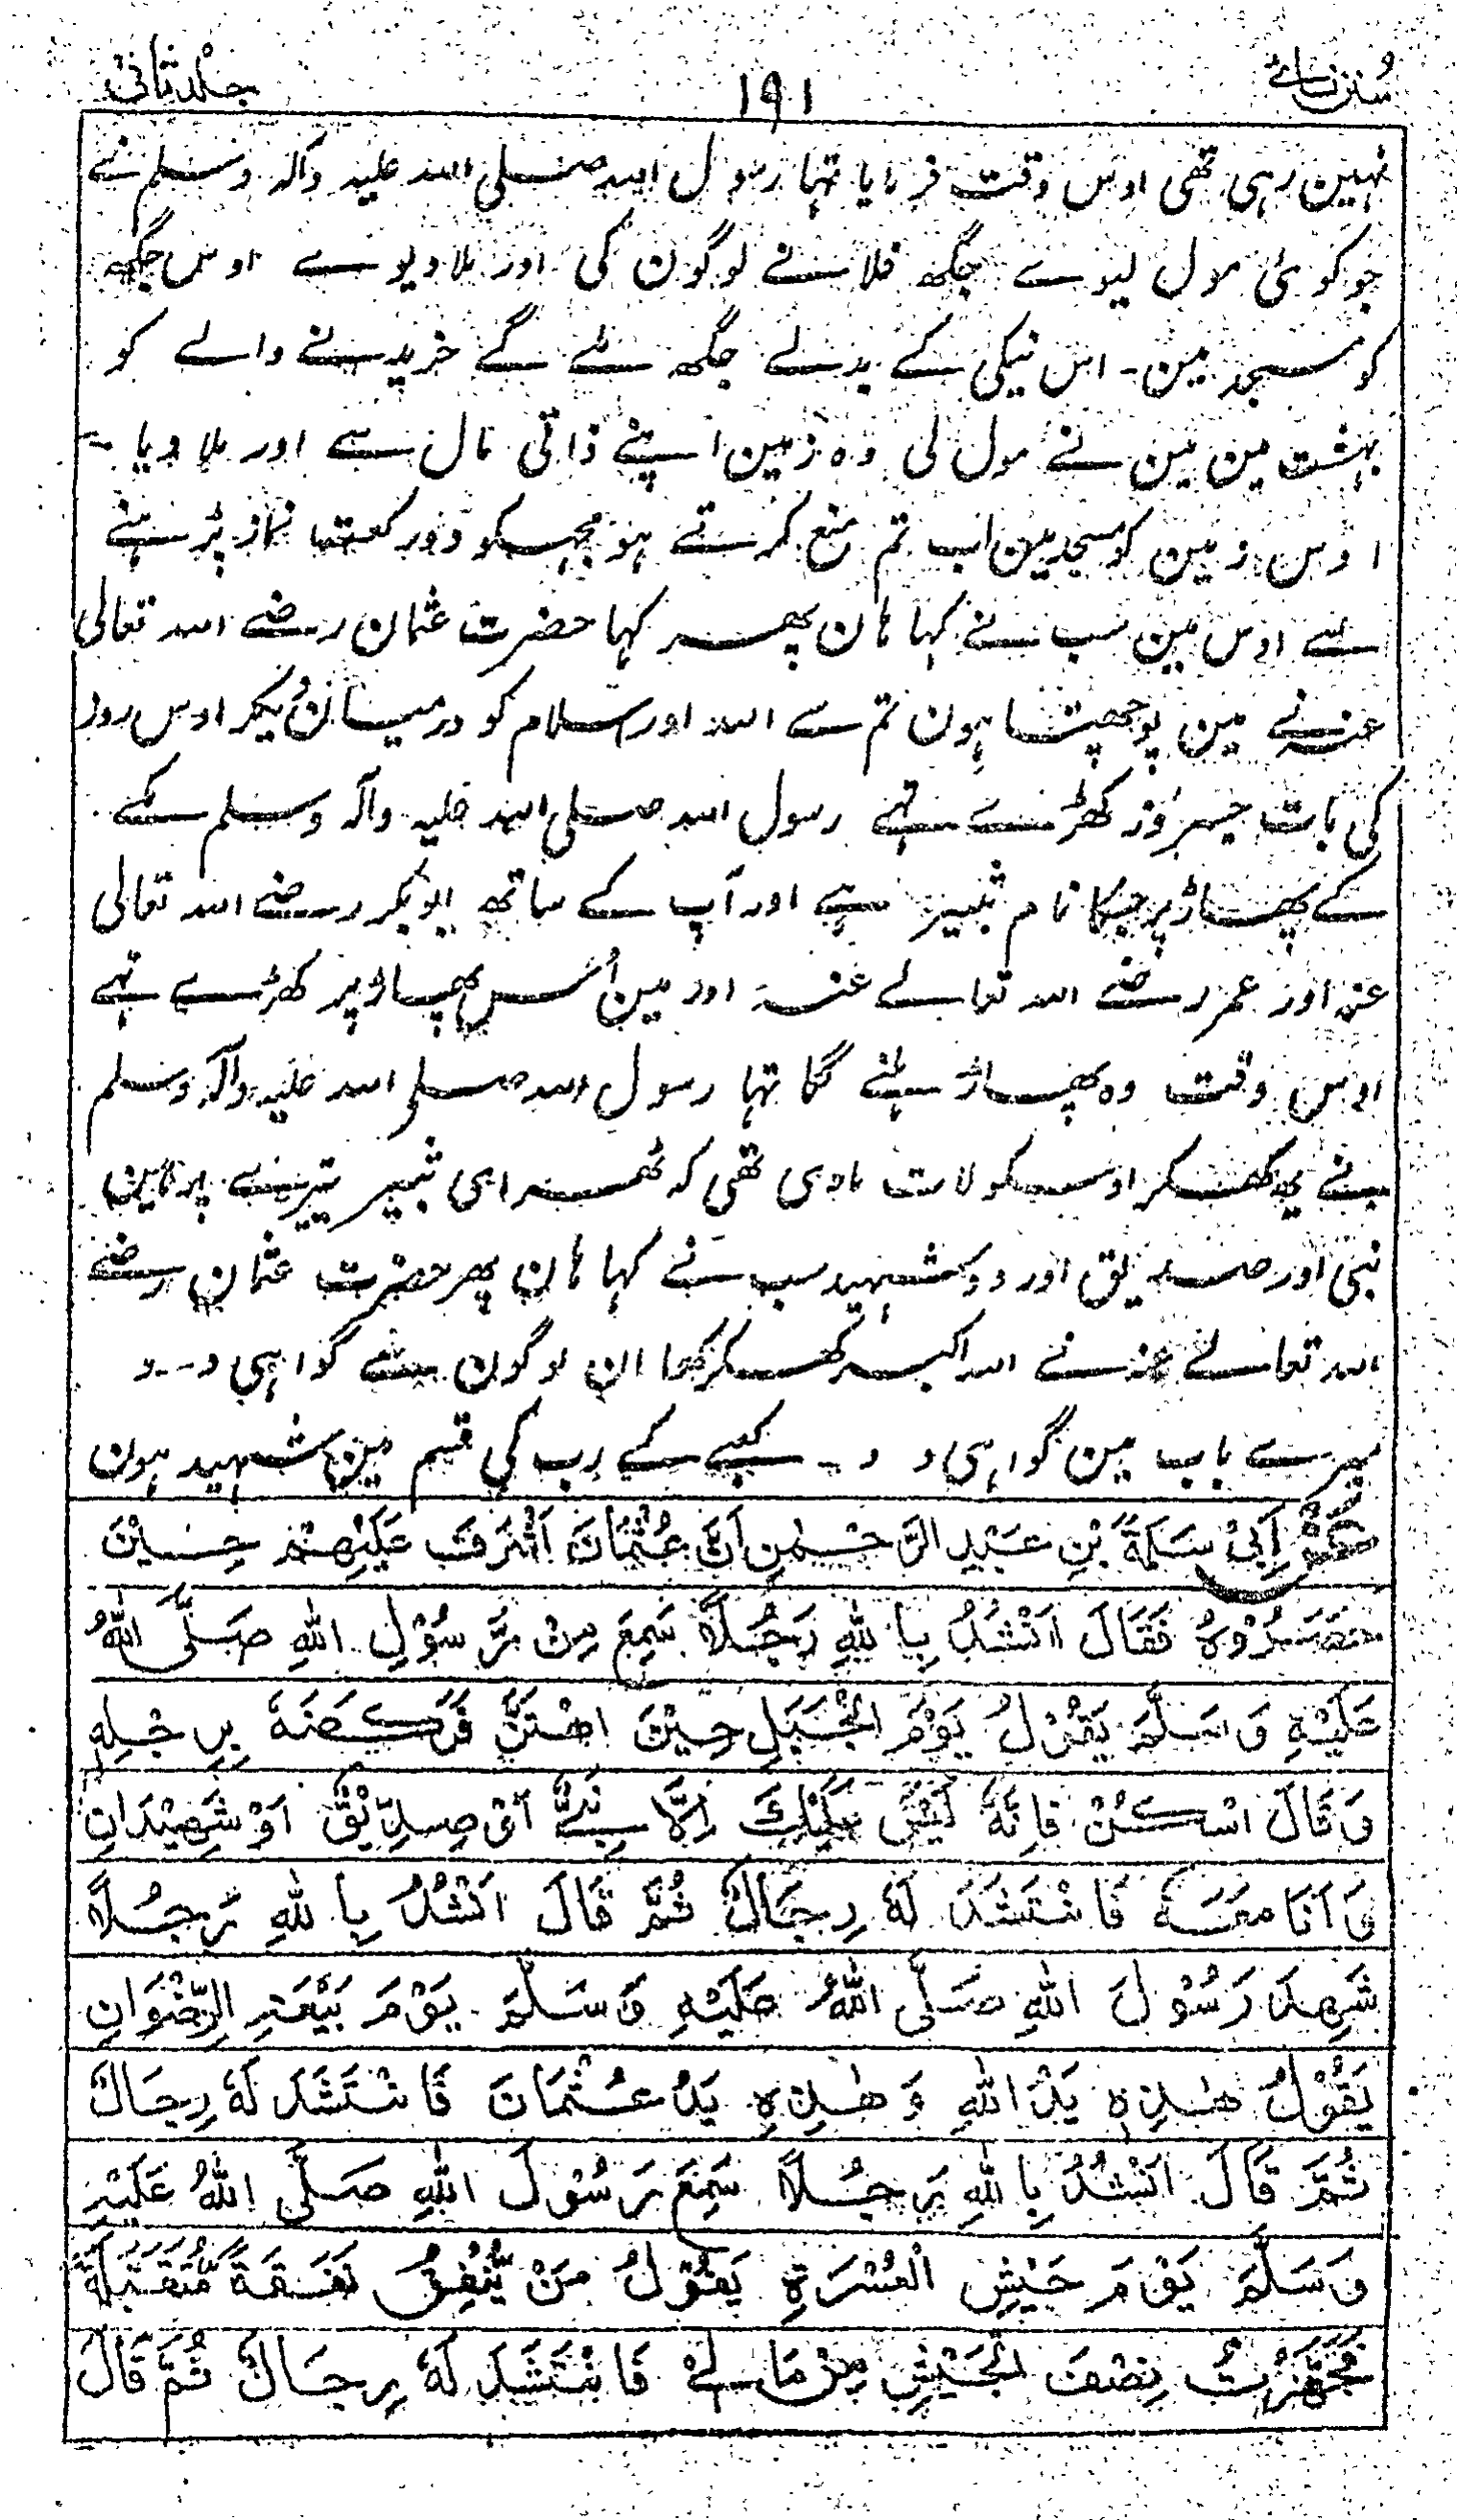 سنن نسائے
۱۹۱
جلد ثانی
نہین رہی تھی اوس وقت فرمایا تہا رسول اللہ صلی اللہ علیہ وآلہ وسلم نے
جو کوئی مول لیوے جگھ فلانے لوگون کی اور ملا دیوے اوس جگھہ
کو مسجد مین۔ اس نیکی کے بدلے جگھ ملے گے خریدنے والے کو
بہشت مین مین نے مول لی وہ زمین اپنے ذاتی مال سے اور ملا دیا
اوس زمین کو مسجد مین اب تم منع کرتے ہو مجہکو دو رکعت نماز پڑہنے
سے اوس مین سب نے کہا ہان پھر کہا حضرت عثمان رضے اللہ تعالی
عنہ نے مین پوچھتا ہون تم سے اللہ اور اسلام کو درمیان دیکر اوس روز
کی بات جسروز کھڑے تہے رسول اللہ صلی اللہ علیہ وآلہ وسلم مکے
کے پھاڑ پر جسکا نام ثبیر ہے اور آپ کے ساتھ ابو بکر رضے اللہ تعالی
عنہ اور عمر رضے اللہ تعالے عنہ اور مین اُس پھاڑ پر کھڑے تہے
اوس وقت وہ پھاڑ ہلنے لگا تہا رسول اللہ صلی اللہ علیہ وآلہ وسلم
نے یہ کھکر اوسکو لات ماری تھی کہ ٹھہر ای ثبیر تیرے پر ہین
نبی اور صدیق اور دو شہید سب نے کہا ہان پھر حضرت عثمان رضے
اللہ تعالے عنہ نے اللہ اکبر کھکر کھا ان لوگون نے گواہی دی
میرے باب مین گواہی دی کعبے کے رب کی قسم مین شہید ہون
عَنْ اَبِيْ سَلَمَةَ بْنِ عَبْدِ الرَّحْمٰنِ اَنَّ عُثْمَانَ اَشْرَفَ عَلَيْهِمْ حِيْنَ
حَصَرُوْهُ فَقَالَ اَنْشُدُ بِاللهِ رَجُلًا سَمِعَ مِنْ رَّسُوْلِ اللهِ صَلَّى اللهُ
عَلَيْهِ وَسَلَّمَ يَقُوْلُ يَوْمَ الْجَبَلِ حِيْنَ اهْتَزَّ فَرَكَضَهُ بِرِجْلِهٖ
وَقَالَ اسْكُنْ فَاِنَّهُ لَيْسَ عَلَيْكَ اِلَّا نَبِيٌّ اَوْ صِدِّيْقٌ اَوْ شَهِيْدَانِ
وَاَنَا مَعَهُ فَانْتَشَدَ لَهُ رِجَالٌ ثُمَّ قَالَ اَنْشُدُ بِاللهِ رَجُلًا
شَهِدَ رَسُوْلَ اللهِ صَلَّى اللهُ عَلَيْهِ وَسَلَّمَ يَوْمَ بَيْعَةِ الرِّضْوَانِ
يَقُوْلُ هٰذِهٖ يَدُ اللهِ وَهٰذِهٖ يَدُ عُثْمَانَ فَانْتَشَدَ لَهُ رِجَالٌ
ثُمَّ قَالَ اَنْشُدُ بِاللهِ رَجُلًا سَمِعَ رَسُوْلَ اللهِ صَلَّى اللهُ عَلَيْهِ
وَسَلَّمَ يَوْمَ جَيْشِ الْعُسْرَةِ يَقُوْلُ مَنْ يُّنْفِقُ نَفَقَةً مُّتَقَبَّلَةً
فَجَهَّزْتُ نِصْفَ الْجَيْشِ مِنْ مَالِيْ فَانْتَشَدَ لَهُ رِجَالٌ ثُمَّ قَالَ